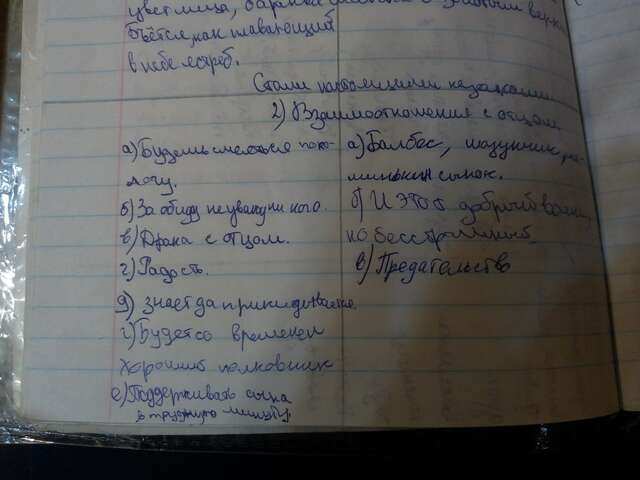 цвет лица,
бьётся, как плавающий
в небе ястреб.
Стали настоящими казаками
2) Взаимоотношения с отцом
а) Будешь смеяться поко-
лочу.
б) За обиду не уважу никого.
в) Драка с отцом.
г) Радость.
д) знает да прикидывается.
Будет со времене
хороший полковник
е) Поддерживать сынка
в трудную минуту
а) Балбес, мазунчик,
сынок.
б) И этот добрый
но бесстрашный.
в) Предательство